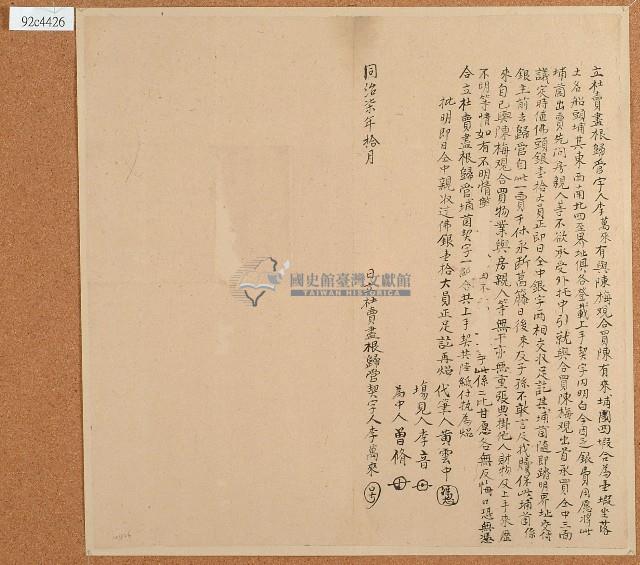 92c4426
立杜賣盡根歸管字人李萬來有與陳梅观合買陳有來埔園四塅合為壹塅坐落
土名船頭埔其東西南北四至界址俱各登載上手契字內明白今因乏銀費用愿將此
埔園出賣先問房親人等不欲承受外托中引就與合買陳梅观出首承買仝中三面
議定時值佛頭銀壹拾大員正即日仝中銀字兩相交收足訖其埔園隨即踏明界址交付
銀主前去歸管自此一賣千休永斷葛藤日後來及子孫不敢言及找贖保此埔園係
來自己與陳梅观合買物業與房親人等無干亦無重張典掛他人財物及上手來歷
不明等情如有不明情
此係二比甘愿各無反悔口恐無憑
合立杜賣盡根歸管埔園契字一紙合共上手契共陸紙付執為炤
批明即日仝中親收過佛銀壹拾大員正足訖再炤
代筆人黃雲中
塲見人李音
為中人曾脩
同治柒年拾月
日立杜賣盡根歸管契字人李萬來
國史館臺灣文獻館
TAIWAN HISTORICA